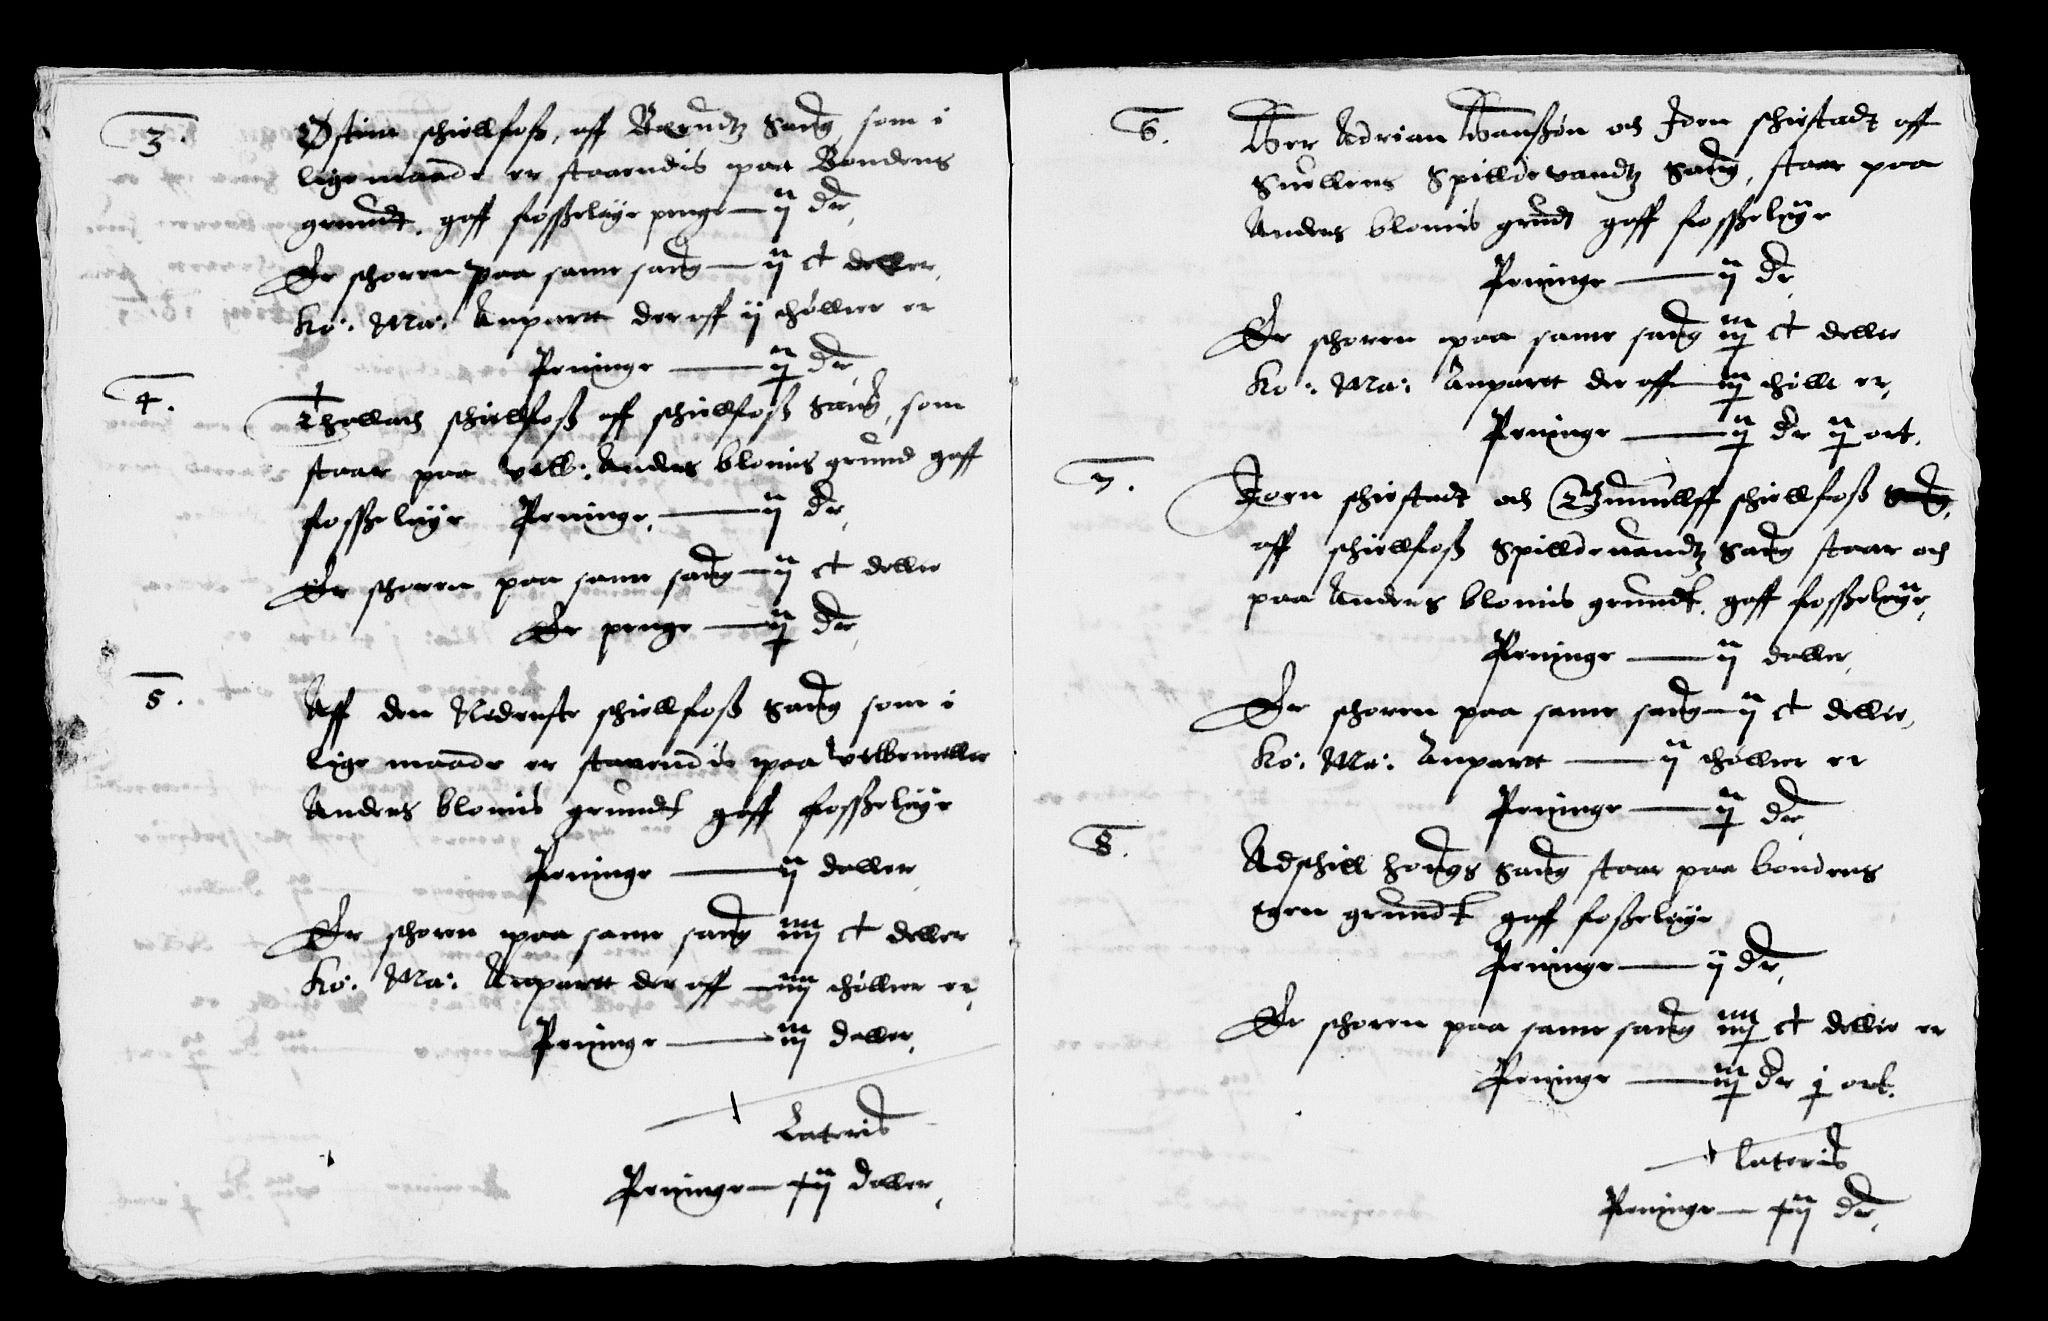 3.
Østenn schielfoß, aff Bærndtz Saug, som i
lige maade er staaendis paa Bondens
grundt. gaff fosseleye penge — ij dr,
Er schoren paa same saug — ij ct deller,
Ko: Ma: Anpartt der aff ij thølter er
Peninge — ij dr,
4.
Thollach schielfoß aff schielfoß Saug, som
staar paa velb: Anders blomis grund gaff
fosseleye Peninge, — ij dr,
Er schoren paa same saug — ij ct deller
Er penge — ij dr,
5.
Aff den Nedenste schielfoß Saug som i
lige maade er staaendis paa
Anders blomis grundt gaff fosseleye
Peninge — ij daller
Er schoren paa same saug iiij ct deller
Ko: Ma: Anpartt der aff — iiij thølter er,
Peninge — iij daller,
Lateris
Peninge — daller,
6.
Her Adrian Hanßøn och Joen schiestadt aff
Snellens Spilldevandtz Saug, staar paa
Anders blomis grundt gaff fosseleye
Peninge — ij dr,
Er schoren paa same saug iij ct deller
Ko: Ma: Anpartt der aff iij thølt er,
Peninge — ij dr ij ort.
7.
Joen schiestadt och schielfoß Saug,
aff schielfoß Spilldevandtz Saug staar och
paa Anders blomis grundt. gaff fosseleye,
Peninge — ij daller,
Er schoren paa same saug — ij ct deller,
Ko: Ma: Anpartt — ij thølter er
Peninge — ij dr,
8.
Saug staar paa bondens
egen grundt gaff fosseleye
Peninge — ij dr,
Er schoren paa same saug iiij ct deller er
Peninge — iij dr j ort.
Lateris
Peninge — dr,